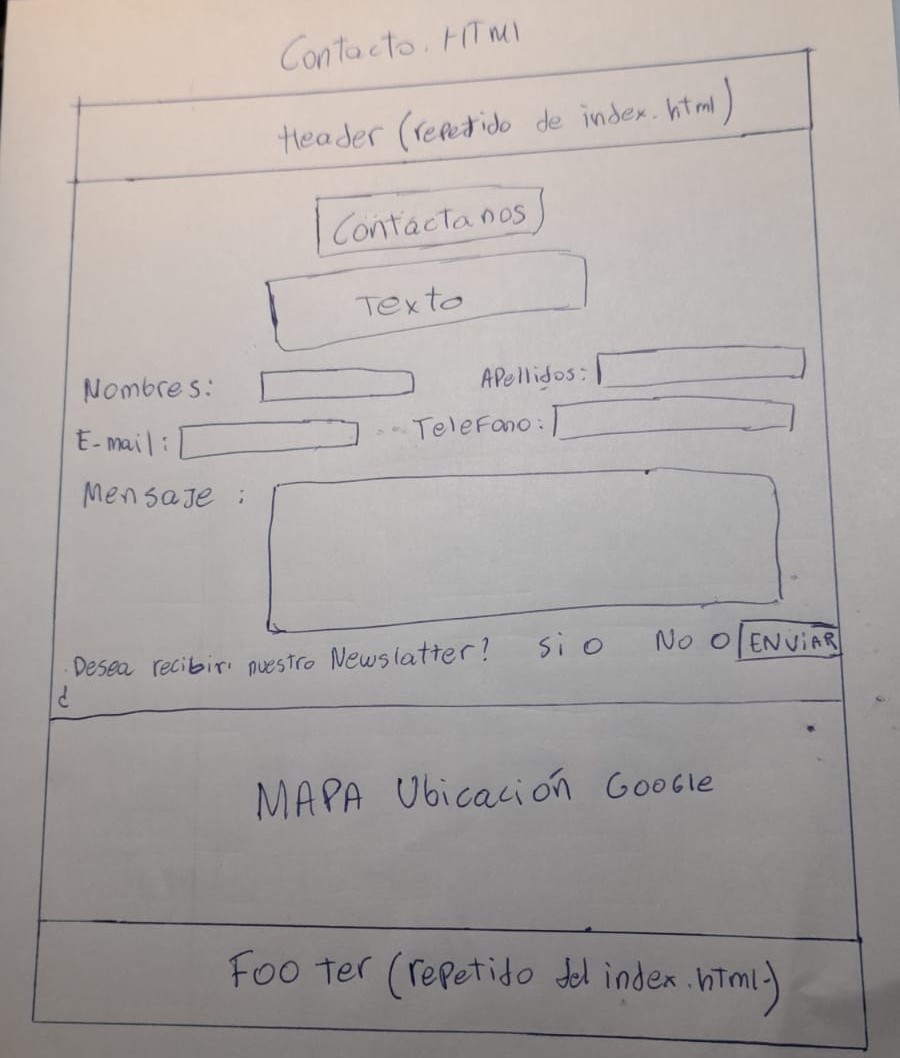 Contacto.HTMl
Header (repetido de index.html)
Contáctanos
Texto
Nombres: Apellidos:
E-mail: Telefono:
Mensaje :
Desea recibir nuestro Newslatter? Si No ENViAR
¿
MAPA Ubicación GOOGle
Footer (repetido del index.html)